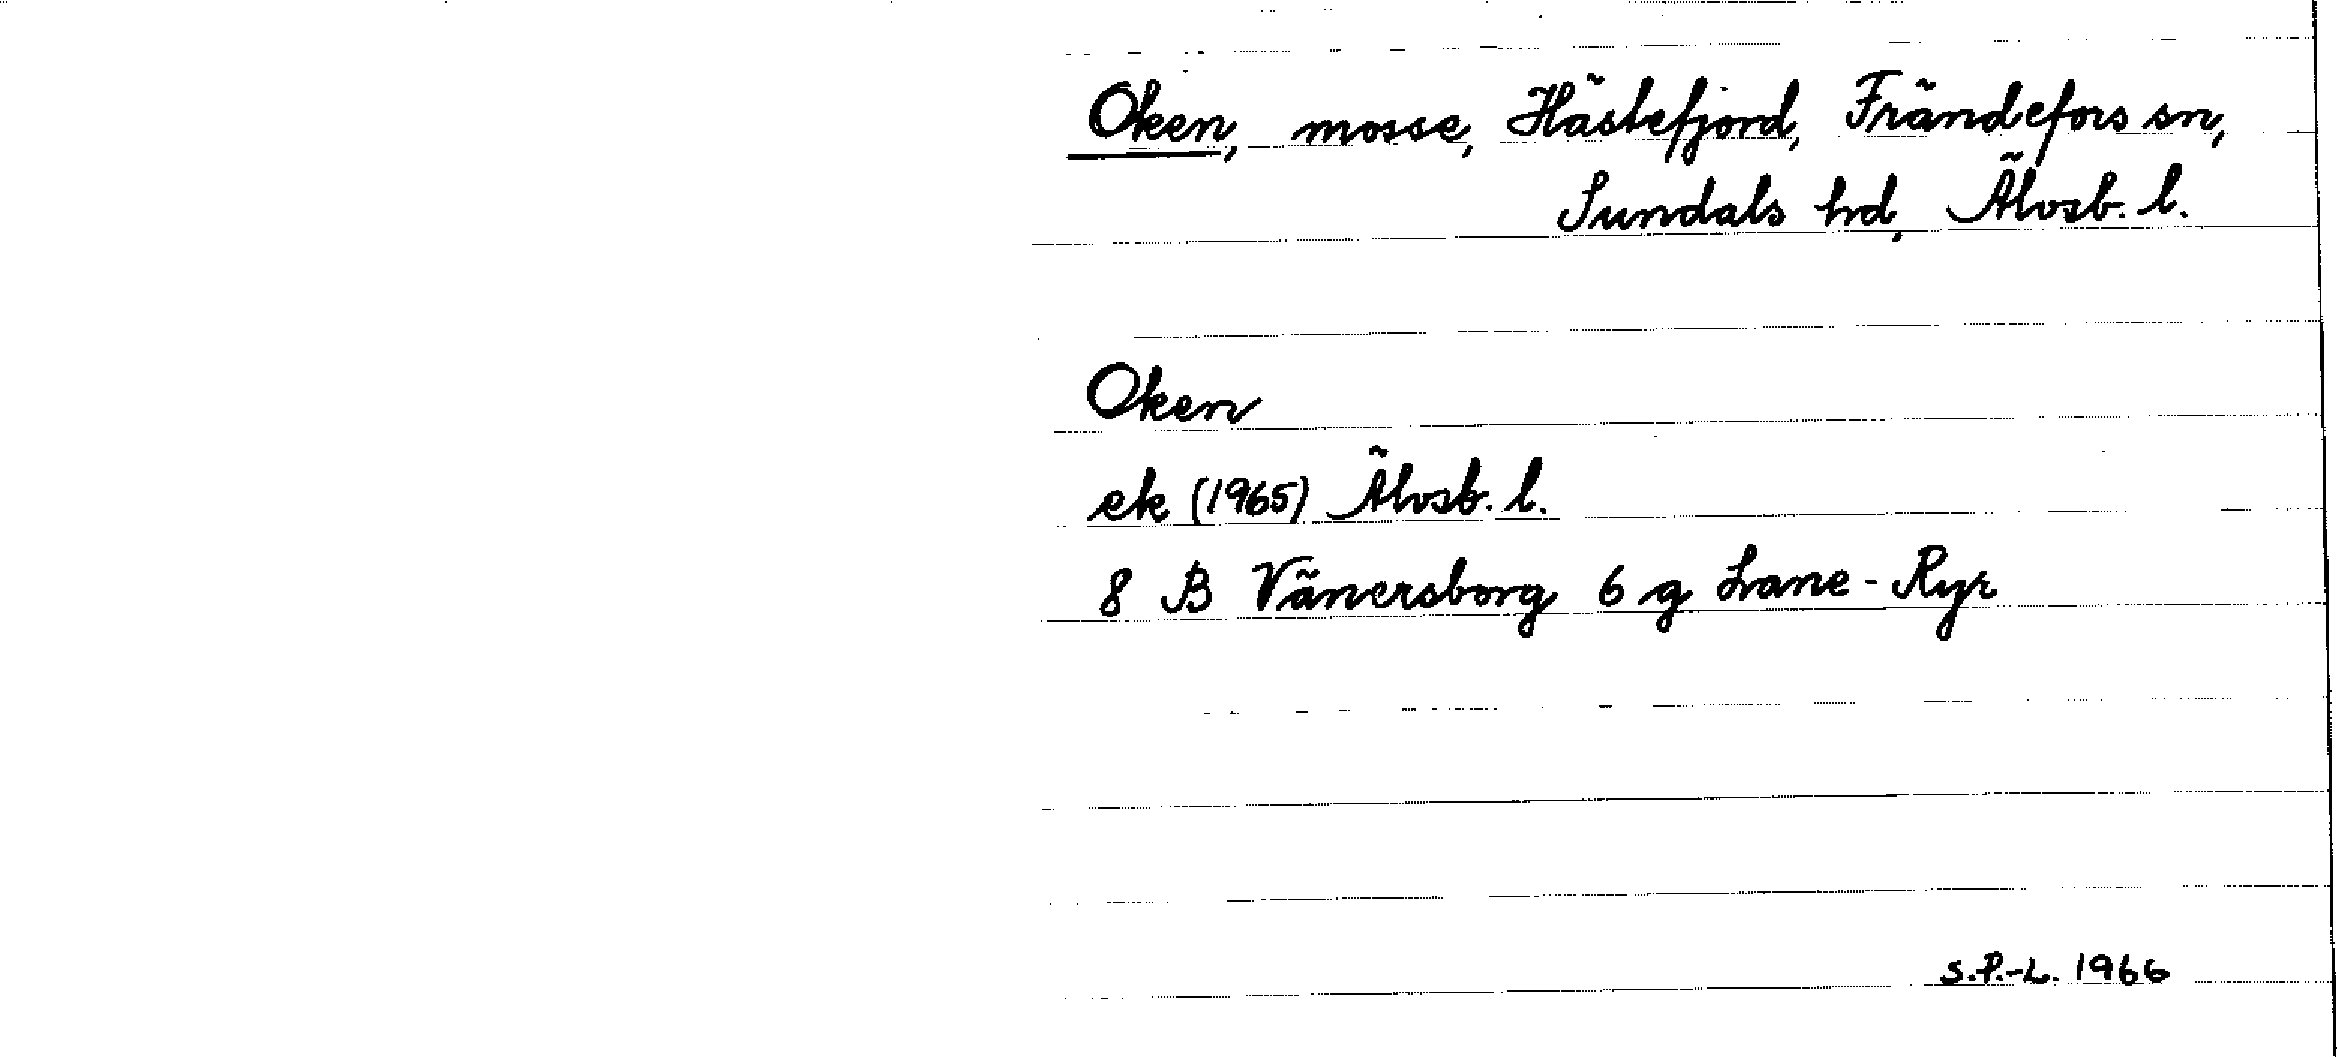 Oken, mosse, Hästefjord, Frändefors sn,
Sundals hd, Älvsb. l.
Oken
ek (1965) Älvsb. l.
8 B Vänersborg 6 g Lane-Ryr
S.P.-L. 1966